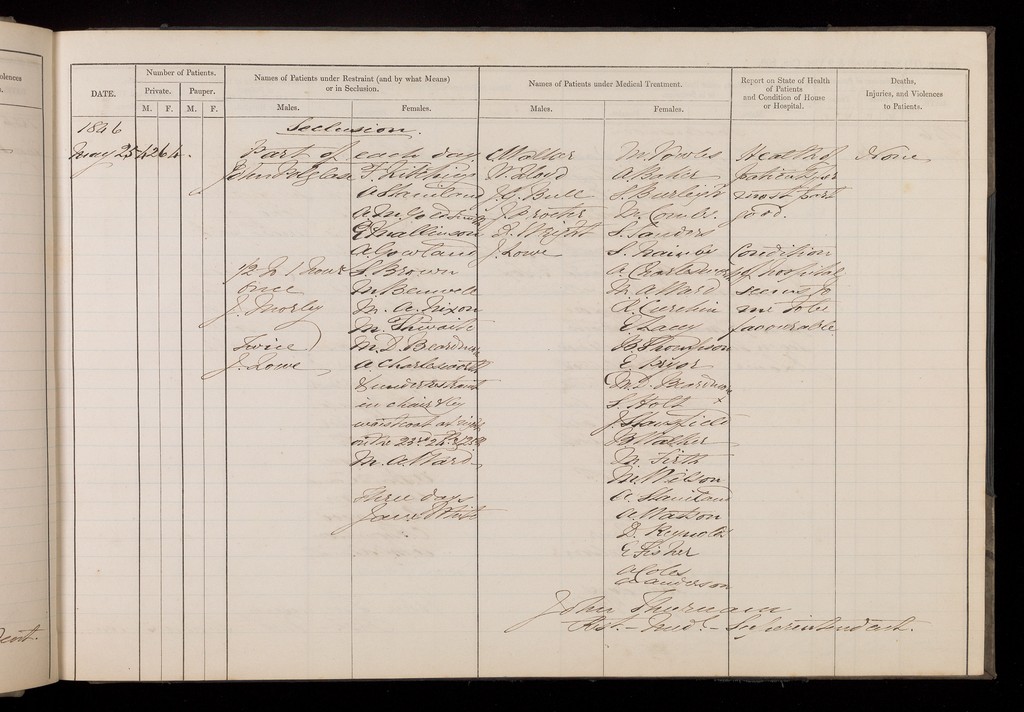 olences
DATE.
Number of Patients.
Private.
Pauper.
M.
F.
M.
F.
Names of Patients under Restraint (and by what Means)
or in Seclusion.
Males.
Females.
Names of Patients under Medical Treatment.
Males.
Females.
Report on State of Health
of Patients
and Condition of House
or Hospital.
Deaths,
Injuries, and Violences
to Patients.
1846
May 25
Seclusion.
Part of each day
John
1/2 to 1 hour
once
J. Morley
Twice
J. Lowe
A Staniland
A. M. Goldsmith
E Mallinson
A Gowland
S. Brown
M.
M. A. Nixon
M. Thwaite
M. D. Beardmore
A. Charlesworth
& under restraint
in chair & by
waistcoat at night
on the 23rd 24th & 25th
M. A. Ward
Three days
Jane White
W. Lloyd
J. G. Bull
J. Procter
D. Wright
J. Lowe
M. Vowles
A Baker
S. Burleigh
M. Combs.
S. Sanders
S.
A. Charlesworth
M A Ward
E. Lacy
Thompson
E. Prior
M. D. Beardmore
S. Holt x
J. Stansfield
Walker
M. Firth
M. Wilson
A. Staniland
A. Watson
D. Reynolds
E Fisher
A Coles
A Anderson
Health of
patients for
most part
good.
Condition
of hospital
seems to
me to be
favourable
None
John Thurnam
Rest. Med. Superintendent.